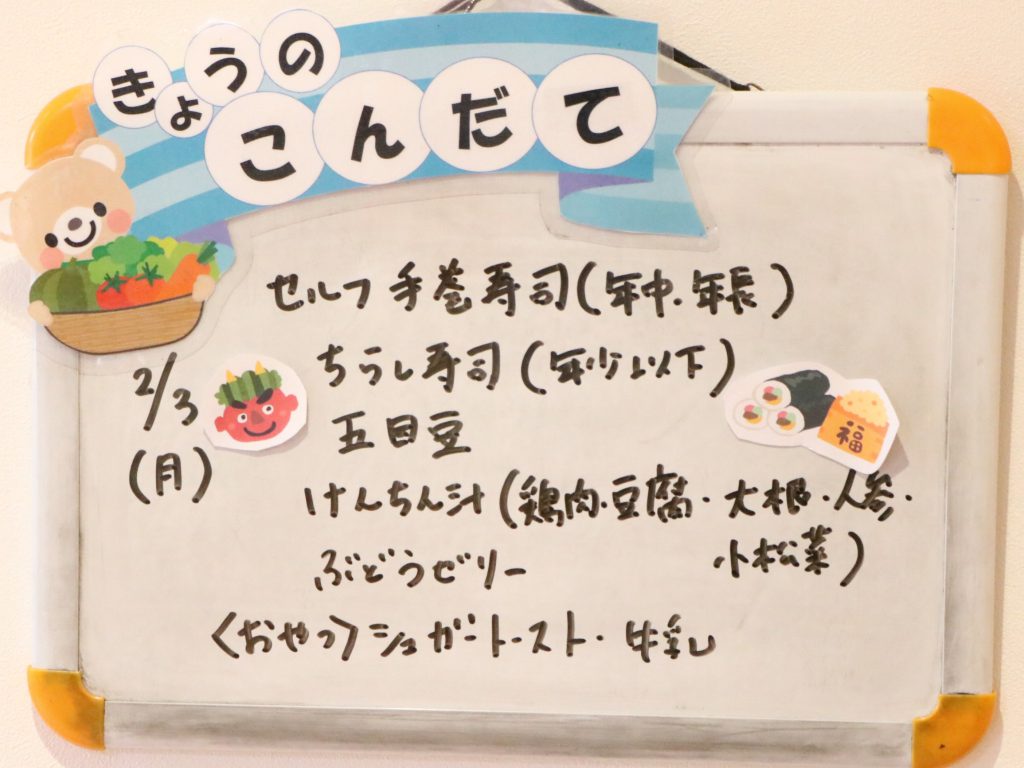 きょうの
こんだて
2/3
(月)
セルフ手巻寿司(年中・年長)
ちらし寿司(年少以下)
五目豆
けんちん汁(鶏肉・豆腐・大根・人参・
小松菜)
ぶどうゼリー
〈おやつ〉シュガートースト・牛乳
福